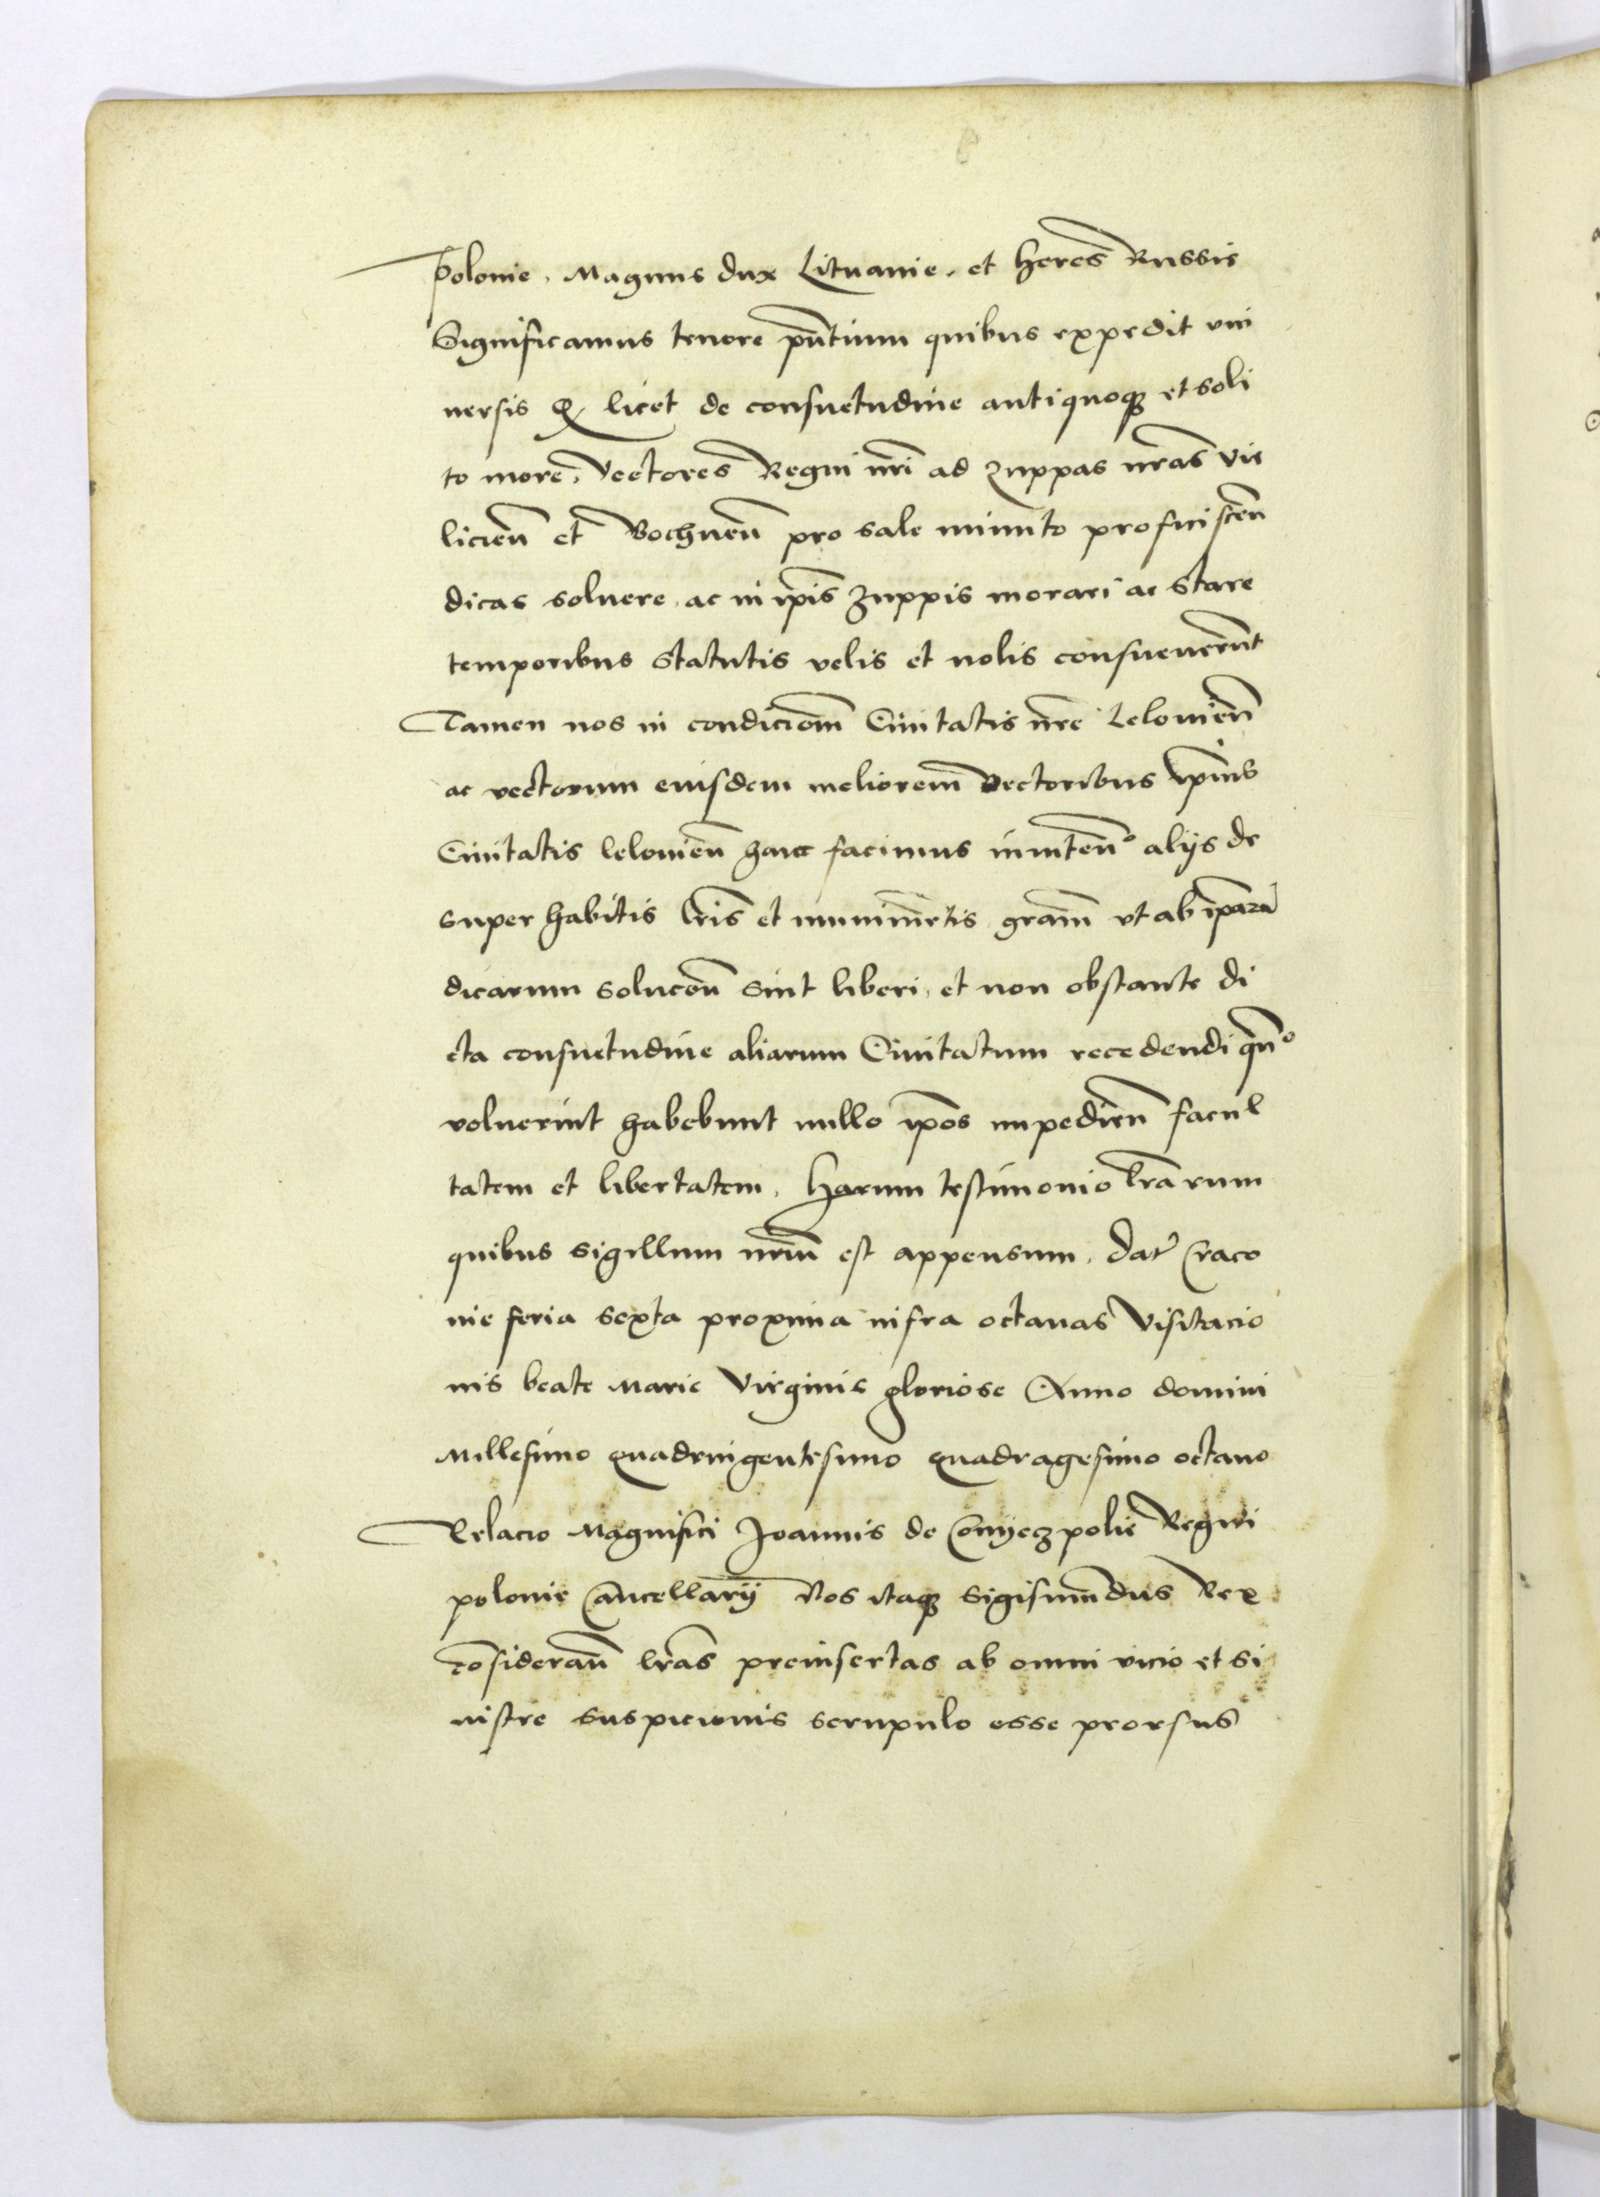 Polonie. Magnus dux Lituanie. et heres Russie
Significamus tenore pn̄tium quibus expedit vni
uersis Q licet de consuetudine antiquoq3 et soli
to more, Vectores Regni nr̄i ad zuppas nr̄as Vie
licien̄ et Bochnen̄ pro sale minuto proficiscen̄
dicas soluere, ac in ip̄is zuppis morari ac stare
temporibus statutis velis et nolis consueuerūt
Tamen nos in condiciom̄ Ciuitatis nr̄e Lelouien̄
ac vectorum eiusdem meliorem̄ Vectoribus ip̄ius
Ciuitatis lelouien̄ hanc facimus inniten̄º alijs de
super habitis lr̄is et munimētis gram̄ vt ab ip̄arū
dicarum solucōn̄ sint liberi, et non obstante di
cta consuetudine aliarum Ciuitatum recedendi qn̄º
voluerint habebunt nullo ip̄os impedien̄ facul
tatem et libertatem. Harum testimonio lr̄arum
quibus sigillum nrm̄ est appensum. Dat̄ Craco
uie feria sexta proxima infra octauas Visitacio
nis beate Marie Virginis gloriose Anno domini
Millesimo quadringentesimo quadragesimo octauo
Relacio Magnifici Joannis de Conyeczpolie Regni
polonie Cancellarij Nos itaq3 Sigismūdus Rex
cōsideran̄ lr̄as preinsertas ab omni vicio et si
nistre suspicionis scrupulo esse prorsus